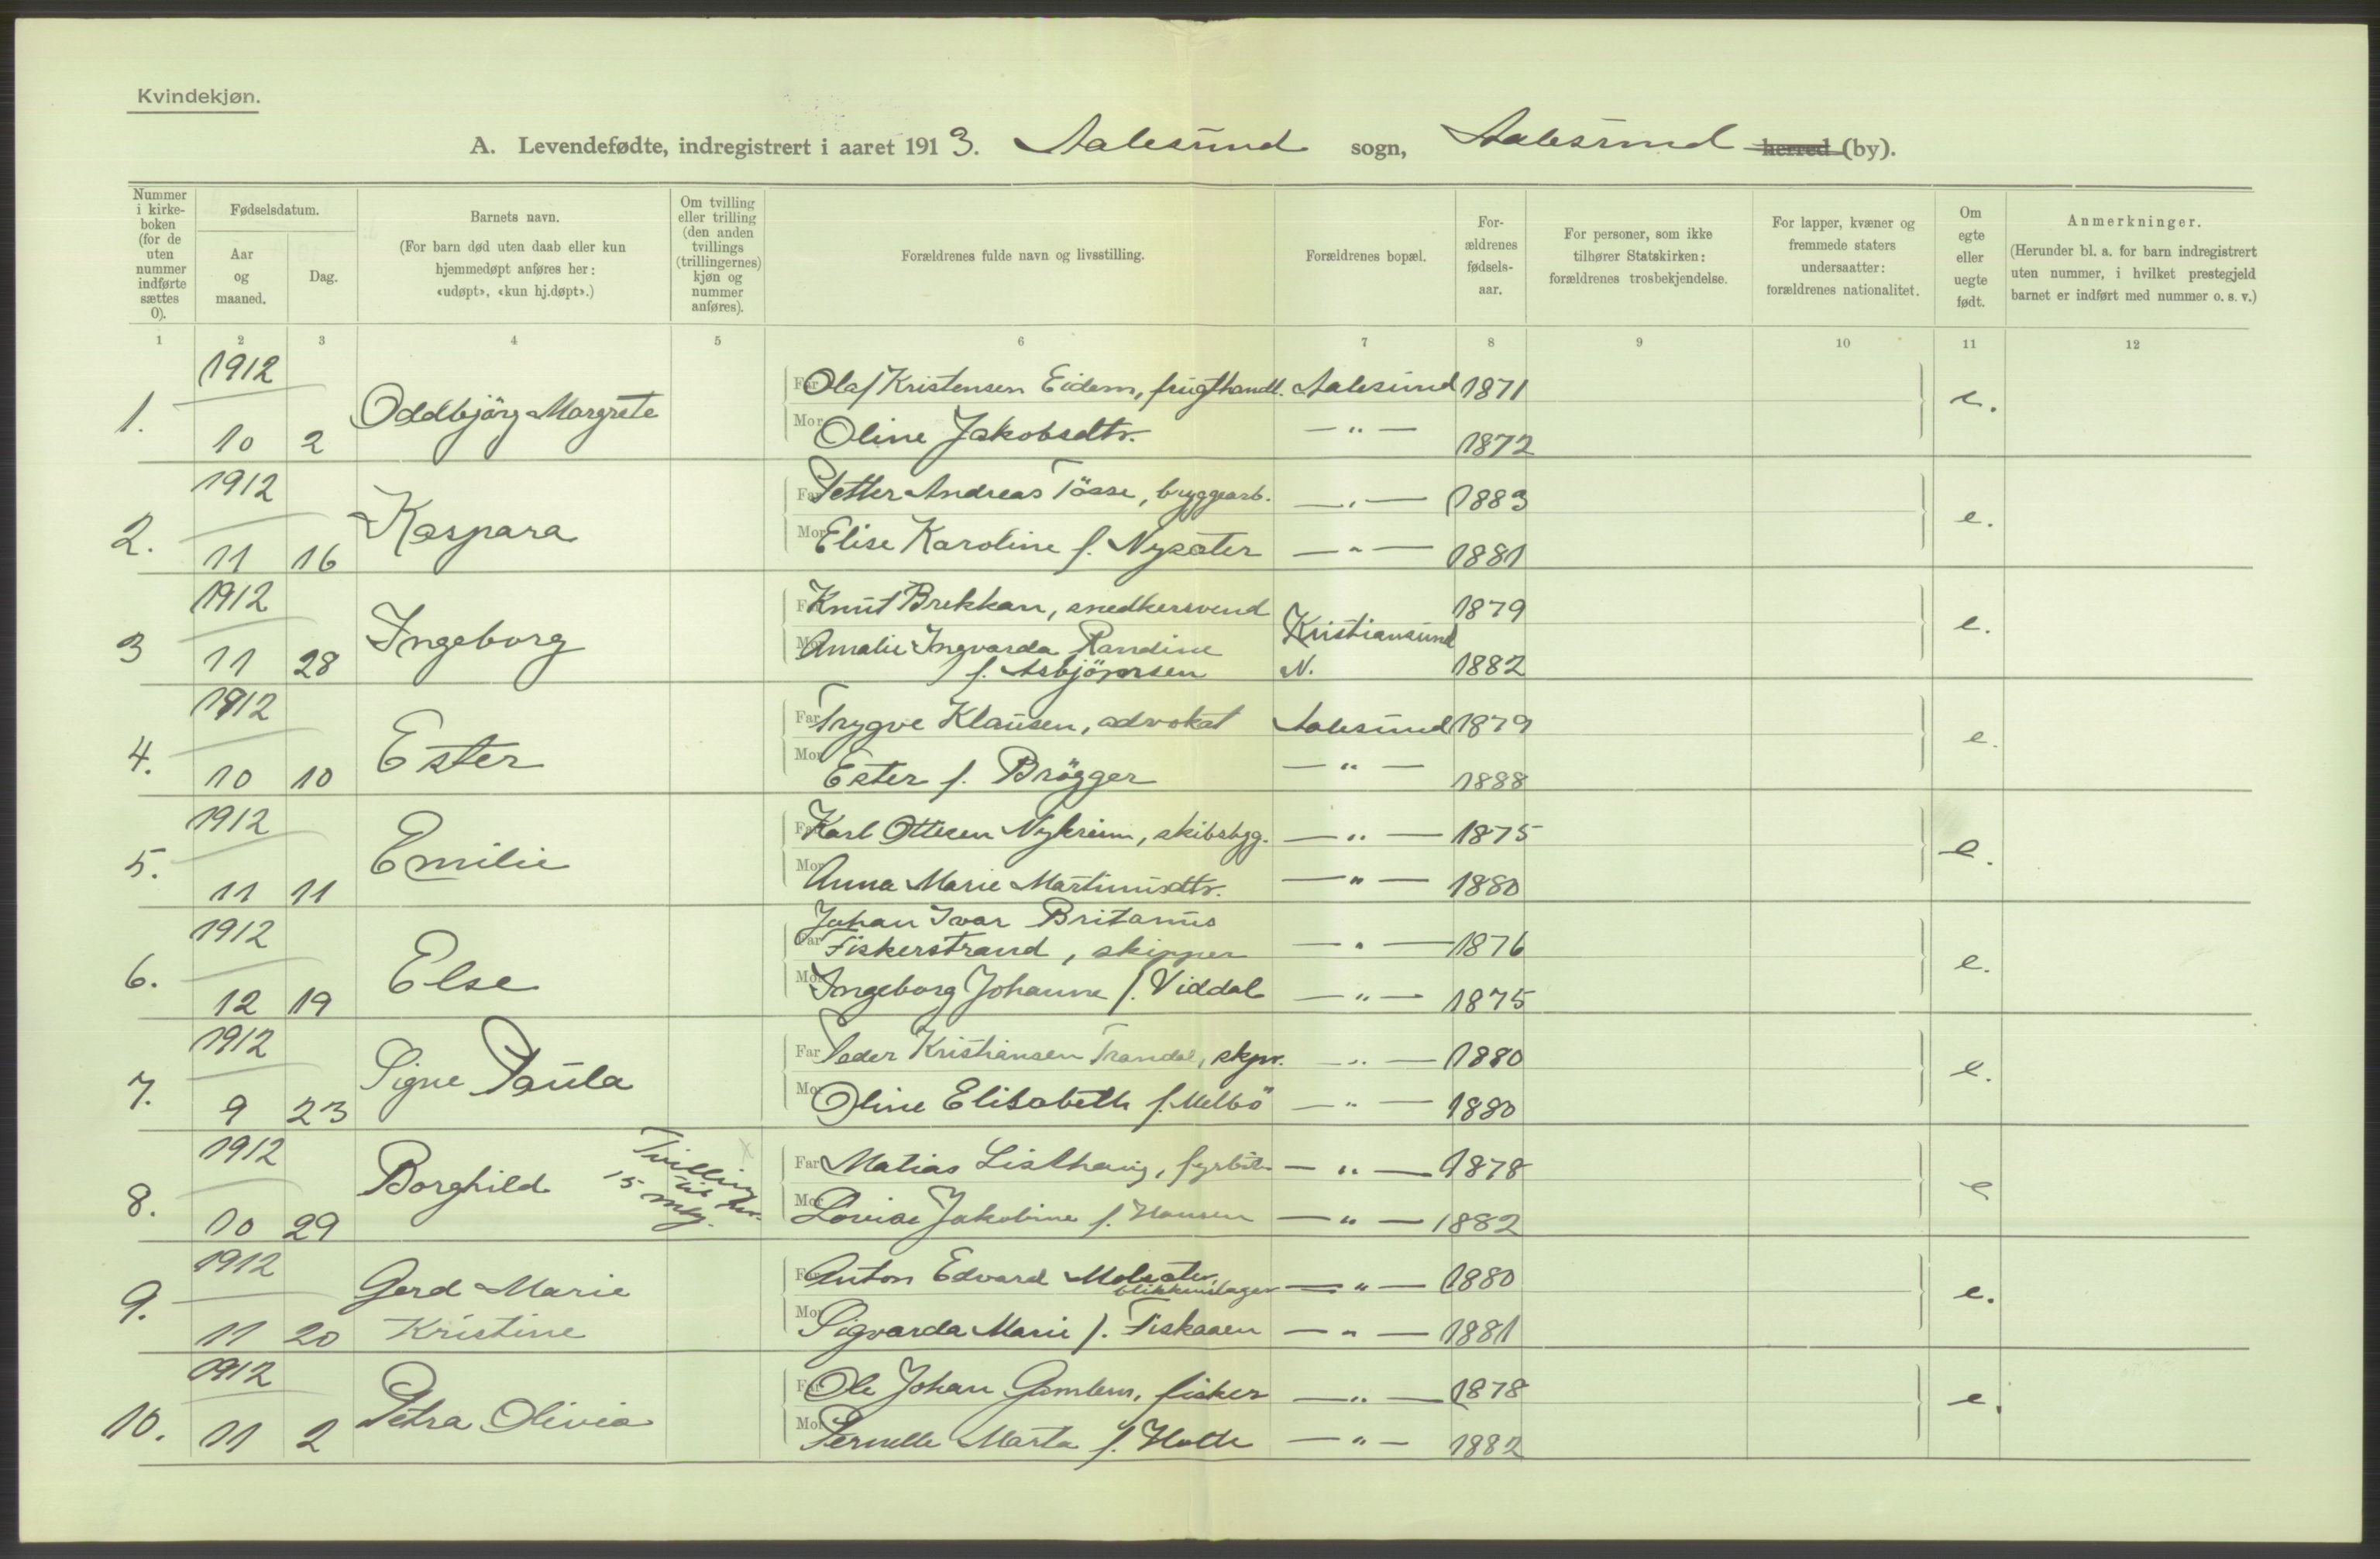 Kvindekjøn.
A. Levendefødte, indregistrert i aaret 1913. Aalesund sogn, Aalesund herred (by).
Nummer i kirkeboken (for de uten nummer indførte sættes 0).
Fødselsdatum.
Aar og maaned.
Dag.
Barnets navn.
(For barn død uten daab eller kun hjemmedøpt anføres her: «udøpt», «kun hj.døpt».)
Om tvilling eller trilling (den anden tvillings (trillingernes) kjøn og nummer anføres).
Forældrenes fulde navn og livsstilling.
Forældrenes bopæl.
Forældrenes fødselsaar.
For personer, som ikke tilhører Statskirken: forældrenes trosbekjendelse.
For lapper, kvæner og fremmede staters undersaatter: forældrenes nationalitet.
Om egte eller uegte født.
Anmerkninger.
(Herunder bl. a. for barn indregistrert uten nummer, i hvilket prestegjeld barnet er indført med nummer o. s. v.)
1 2 3 4 5 6 7 8 9 10 11 12
1. 1912 10 2 Oddbjörg Margrete
Far Olaf Kristensen Eidem, frugthandl. Aalesund 1871 e.
Mor Oline Jakobsdtr. — " — 1872
2. 1912 11 16 Kaspara
Far Petter Andreas Tösse, bryggearb. — " — 1883 e.
Mor Elise Karoline f. Nysæter — " — 1881
3 1912 11 28 Ingeborg
Far Knut Brekkan, snedkersvend Kristiansund 1879 e.
Mor Amalie Ingvarda Randine
f. Asbjörnsen N. 1882
4. 1912 10 10 Ester
Far Trygve Klausen, advokat Aalesund 1879 e.
Mor Ester f. Brögger — " — 1888
5. 1912 11 11 Emilie
Far Karl Ottesen Nykreim, skibsbygg. — " — 1875 e.
Mor Anna Marie Martinusdtr. — " — 1880
6. 1912 12 19 Else
Johan Ivar Britanus
Far Fiskerstrand, skipper — " — 1876 e.
Mor Ingeborg Johanne f. Viddal — " — 1875
7. 1912 9 23 Signe Paula
Far Peder Kristiansen Trandal, skpr. — " — 1880 e.
Mor Oline Elisabeth f. Melbö — " — 1880
8. 1912 10 29 Borghild Tvilling til nr. 15 mkj.
Far Matias Listhaug, fyrböt. — " — 1878 e
Mor Lovise Jakobine f. Hansen — " — 1882
9. 1912 11 20 Gerd Marie
Kristine
Far Anton Edvard Molsæter,
blikkenslager — " — 1880 e.
Mor Sigvarda Marie f. Fiskaaen — " — 1881
10. 1912 11 2 Petra Olivia
Far Ole Johan Gamlem, fisker — " — 1878 e.
Mor Pernelle Marta f. Holte — " — 1882